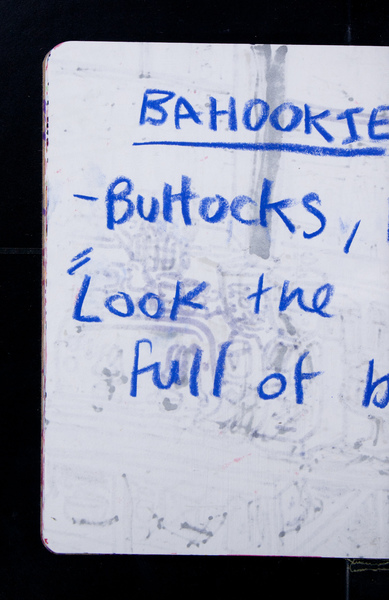 BAHOOKIE
- Buttocks,
"Look the
full of b